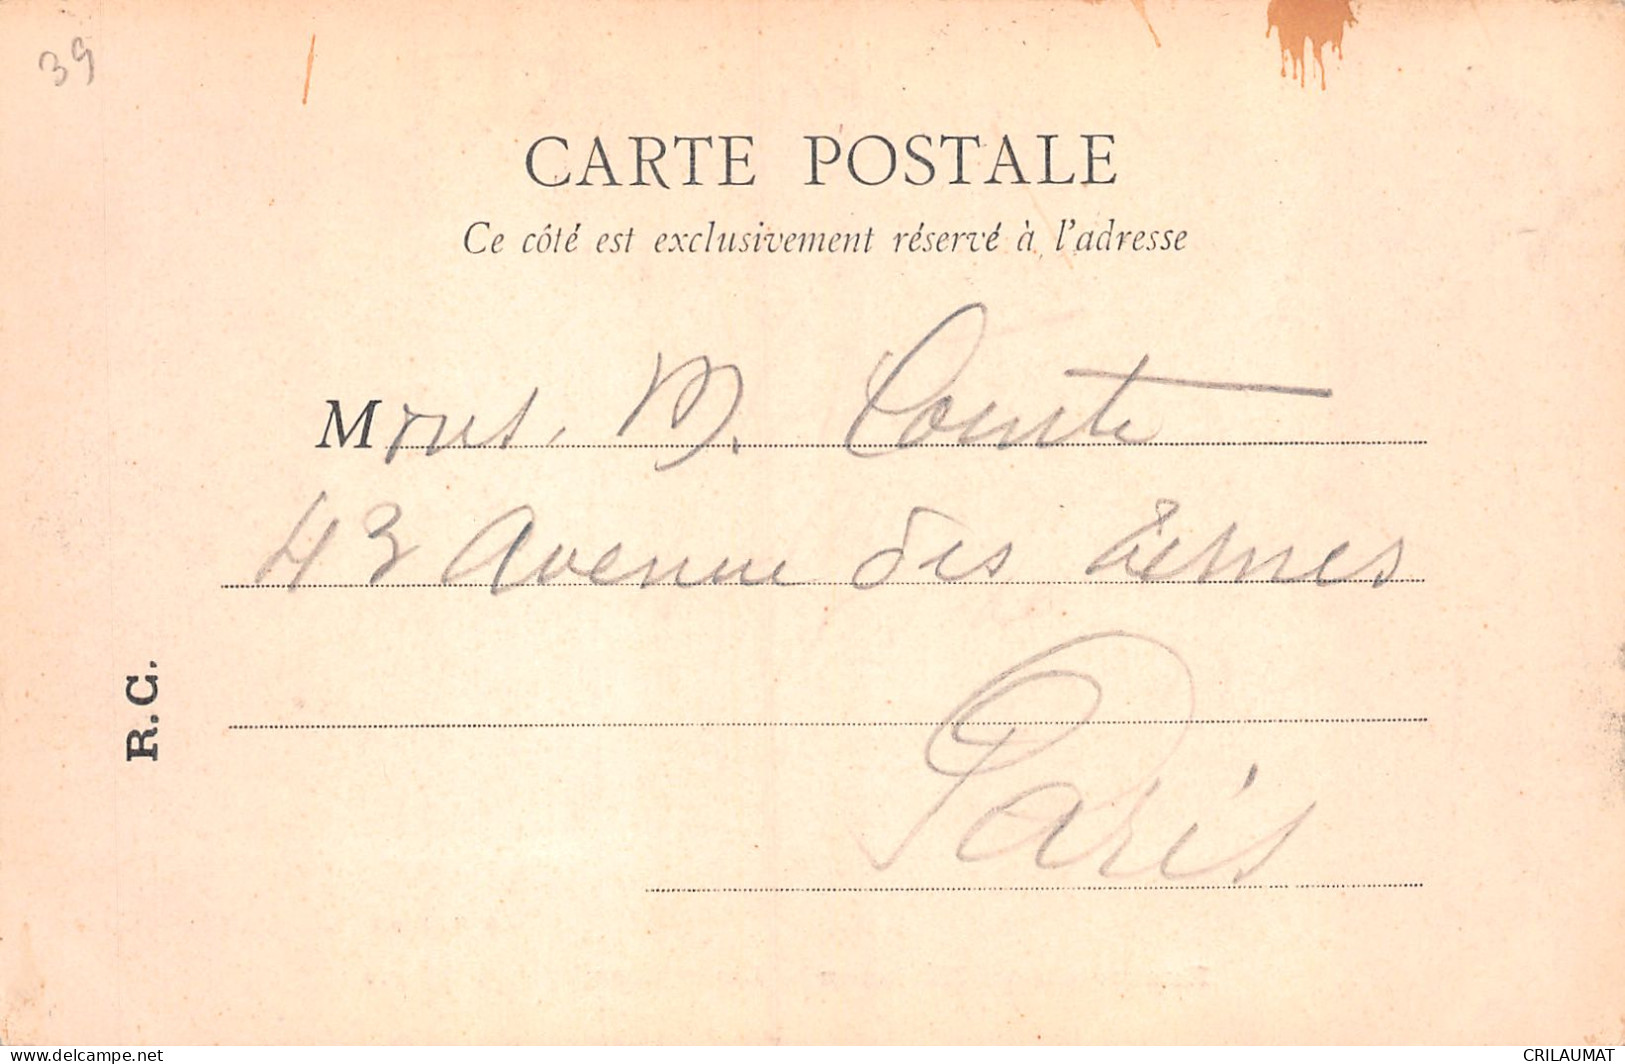 39
CARTE POSTALE
Ce côté est exclusivement réservé à l'adresse
M M. Comte
43 Avenue des Ternes
Paris
R.C.
www.delcampe.net
CRILAUMAT